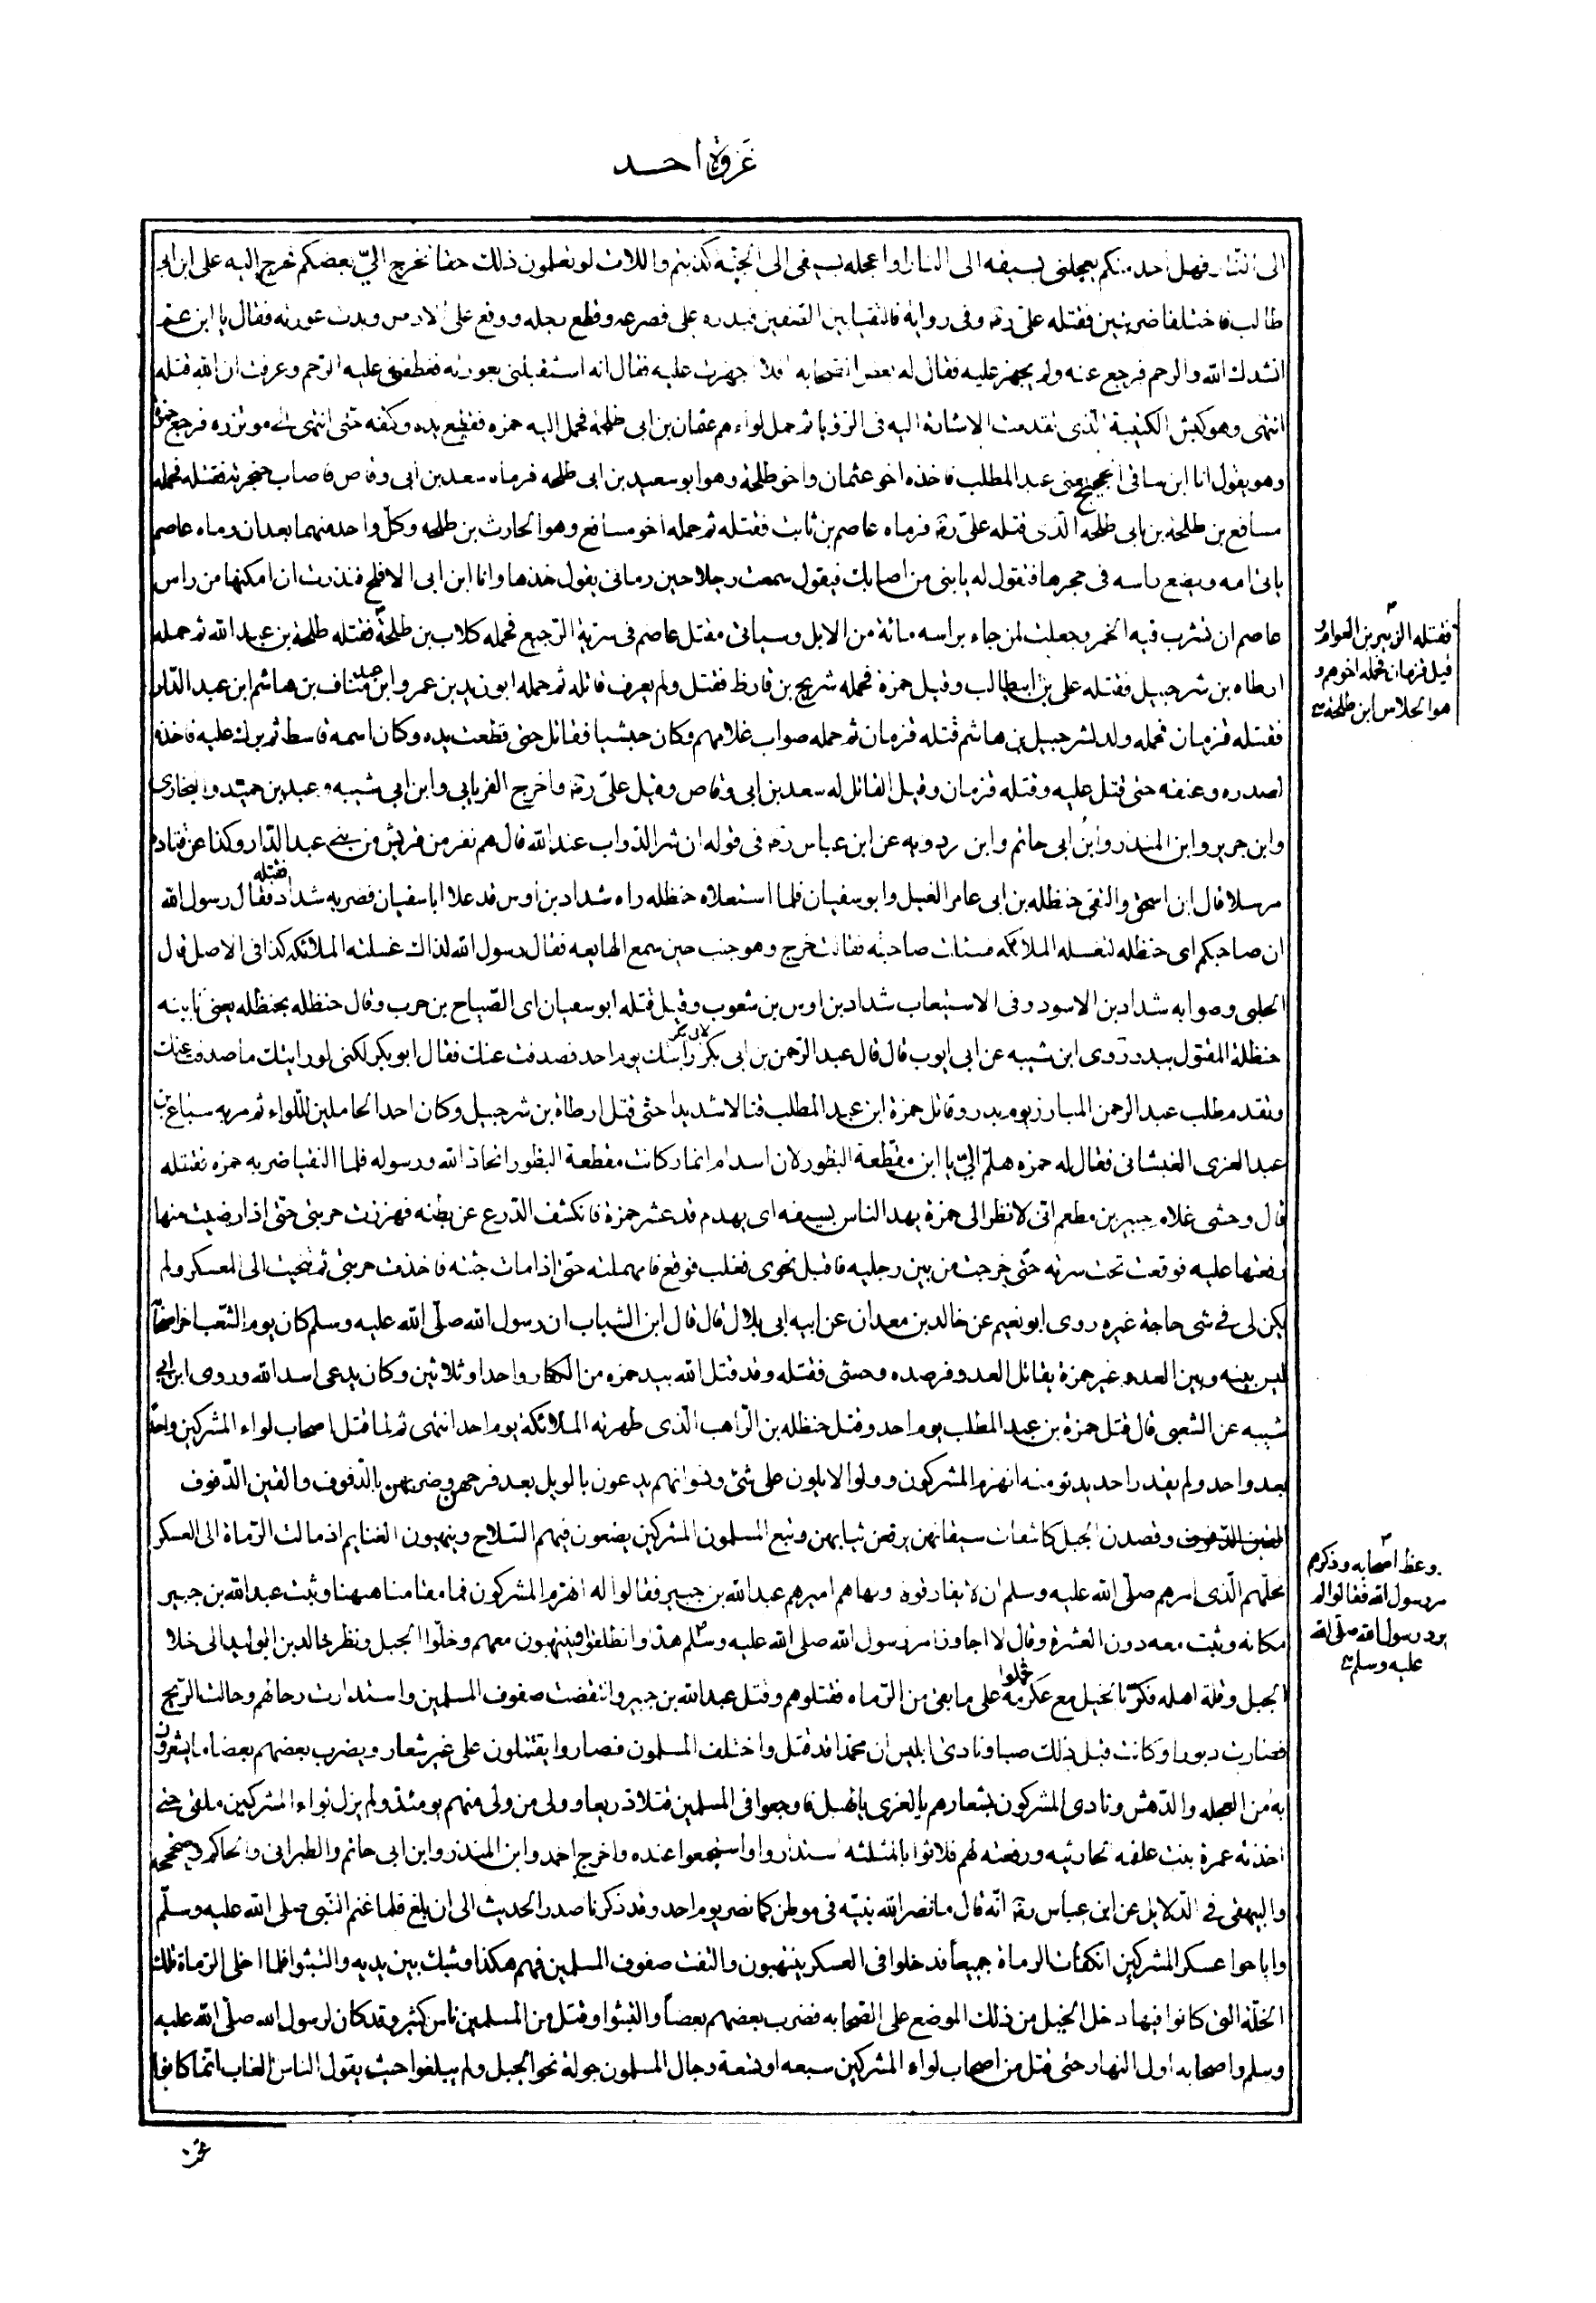 غزوة احد
الى النار فهل احد منكم يعجلنى بسيفه الى النار او اعجله بسيفى الى الجنة كذبتم واللات لو تعلمون ذلك حقا لخرج الىّ بعضكم فخرج اليه على ابن ابى
طالب فاختلفا ضربتين فقتله علىّ رضه وفى رواية فالتقيا بين الصفين فبدره على فصرعه وقطع رجله ووقع على الارض وبدت عورته فقال يا ابن عم
انشدك الله والرحم فرجع عنه ولم يجهز عليه فقال له بعض اصحابه افلا اجهزت عليه فقال انه استقبلنى بعورته فعطفنى عليه الرحم وعرفت ان الله قتله
انتهى وهو كبش الكتيبة الّذى تقدمت الاشارة اليه فى الرؤيا ثم حمل لواءهم عثمان بن ابى طلحة فحمل اليه حمزه فقطع يده وكتفه حتى انتهى الى موتزره فرجع حمزة
وهو يقول انا ابن ساقى الحجيج يعنى عبد المطلب فاخذه اخو عثمان واخو طلحة وهو ابو سعيد بن ابى طلحه فرماه سعد بن ابى وقاص فاصاب حنجرته فقتله فحمله
مسافع بن طلحة بن ابى طلحه الّذى قتله علىّ رضه فرماه عاصم بن ثابت فقتله ثم حمله اخو مسافع وهو الحارث بن طلحه وكلّ واحد منهما بعد ان رماه عاصم
ياتى امه ويضع راسه فى حجرها فتقول له يا بنى من اصابك فيقول سمعت رجلا حين رمانى يقول خذها وانا ابن ابى الافلح فنذرت ان امكنها من راس
عاصم ان تشرب فيه الخمر وجعلت لمن جاء براسه مائة من الابل وسياتى مقتل عاصم فى سرّية الرّجيع فحمله كلاب بن طلحة فقتله طلحة بن عبيد الله ثم حمله
فقتله الزبير بن العوام و
قيل قزمان فحمله اخوهم و
هو الجلاس ابن طلحة
ارطاه بن شرحبيل فقتله على بن ابيطالب وقيل حمزة فحمله شريح بن قارظ فقتل ولم يعرف قاتله ثم حمله ابو زيد بن عمرو ابن عبد مناف بن هاشم ابن عبد الدّار
فقتله قزمان فحمله ولد لشرحبيل بن هاشم قتله قزمان ثم حمله صواب غلامهم وكان حبشيا فقاتل حتى قطعت يده وكان اسمه قاسط ثم برك عليه فاخذه
لصدره وعنقه حتى قتل عليه وقتله قزمان وقيل القاتل له سعد بن ابى وقاص وقيل علىّ رضه واخرج الفريابى وابن ابى شيبه وعبد بن حميد والبخارى
وابن جرير وابن المنذر وابن ابى حاتم وابن مردويه عن ابن عباس رضه فى قوله ان شر الدواب عند الله قال هم نفر من قريش من بنى عبد الدّار وكذا عن قتادة
مرسلا قال ابن اسحق والتقى حنظله بن ابى عامر الغسيل وابو سفيان فلما استعلاه حنظله راه شداد بن اوس قد علا ابا سفيان فضربه شداد فقتله فقال رسول الله
ان صاحبكم اى حنظله لتغسله الملائكه فسئلت صاحبته فقالت خرج وهو جنب حين سمع الهايعه فقال رسول الله لذلك غسلته الملائكه كذا فى الاصل قال
الحلبى وصوابه شداد بن الاسود وفى الاستيعاب شداد بن اوس بن شعوب وقيل قتله ابو سفيان اى الصّياح بن حرب وقال حنظله بحنظله يعنى بابنه
حنظلة المقتول ببدر وروى ابن شيبه عن ابى ايوب قال قال عبد الرّحمن بن ابى بكر لابى بكر رايتك يوم احد فصدفت عنك فقال ابو بكر لكنى لو رايتك ما صدفت عنك
وتقدم مطلب عبد الرحمن المبارز يوم بدر وقاتل حمزة ابن عبد المطلب قتالا شديدا حتى قتل ارطاة بن شرحبيل وكان احد الحاملين للّواء ثم مر به سباع بن
عبد العزى الغبشانى فقال له حمزه هلمّ الىّ يا ابن مقطعة البظور لان امه ام انمار كانت مقطعة البظور اتحاذ الله ورسوله فلما التقيا ضربه حمزه فقتله
قال وحشى غلام جبير بن مطعم انى لانظر الى حمزة يهد الناس بسيفه اى يهدم قد عثر حمزة فانكشف الدّرع عن بطنه فهززت حربتى حتى اذا رضيت منها
دفعتها عليه فوقعت تحت سرته حتّى خرجت من بين رجليه فاقبل نحوى فغلب فوقع فامهلته حتّى اذا مات جئته فاخذت حربتى ثم تنحيت الى المعسكر ولم
يكن لى فى شى حاجة غيره روى ابو نعيم عن خالد بن معدان عن ابيه ابى بلال قال قال ابن الشياب ان رسول الله صلّى الله عليه وسلم كان يوم الشّعب اخر اصحابه
ليس بينه وبين العدو غير حمزة يقاتل العدو فرصده وحشى فقتله وقد قتل الله بيد حمزه من الكفار واحدا وثلاثين وكان يدعى اسد الله وروى ابن ابى
شيبه عن الشعبى قال قتل حمزة بن عبد المطلب يوم احد وقتل حنظله بن الرّاهب الّذى طهرته الملائكة يوم احد انتهى ثم لما قتل اصحاب لواء المشركين واحدا
بعد واحد ولم يقدر احد يدنو منه انهزم المشركون وولوا لا يلون على شئ ونسوانهم يدعون بالويل بعد فرحهن وضربهن بالدّفوف والقين الدّفوف
وقصدن الجبل كاشفات سيقانهن يرفعن ثيابهن وتبع المسلمون المشركين يضعون فيهم السّلاح وينهبون الغنايم اذ مالت الرّماة الى العسكر
محلّهم الّذى امرهم صلّى الله عليه وسلم ان لا يفارقوه ونهاهم اميرهم عبد الله بن جبير فقالوا له انهزم المشركون فما مقامنا ههنا وثبت عبد الله بن جبير
مكانه وثبت معه دون العشرة وقال لا اجاوز امر رسول الله صلى الله عليه وسلم هذا وانطلقوا ينتهبون معهم وخلّوا الجبل ونظر خالد بن الوليد الى خلا
وعظ اصحابه وذكرهم
مر رسول الله فقالوا لم
يرد رسول الله صلّى الله
عليه وسلم
الجبل وقلة اهله فكرّ بالخيل مع عكرمة فحملوا على ما بقى من الرّماه فقتلوهم وقتل عبد الله بن جبير وانتقضت صفوف المسلمين واستدارت رحاهم وحالت الرّيح
فصارت دبورا وكانت قبل ذلك صبا ونادى ابليس ان محمّدا قد قتل واختلف المسلمون فصاروا يقتتلون على غير شعار ويضرب بعضهم بعضا ما يشعرون
به من العجله والدّهش ونادى المشركون بشعارهم يا لعزى يا لهبل فاوجعوا فى المسلمين قتلا ذريعا وولى من ولى منهم يومئذ ولم يزل لواء المشركين ملقى حتى
اخذته عمرة بنت علقمه الحارثيه ورفعته لهم فلاثوا به استداروا واستجمعوا عنده واخرج احمد وابن المنذر وابن ابى حاتم والطبرانى والحاكم وصححه
والبيهقى فى الدّلايل عن ابن عباس رضه انّه قال ما نصر الله نبيّه فى موطن كما نصر يوم احد وقد ذكرنا صدر الحديث الى ان بلغ فلما غنم النّبى صلى الله عليه وسلّم
واباحوا عسكر المشركين انكفأت الرماة جميعاً قد خلوا فى العسكر ينتهبون والتفت صفوف المسلمين فهم هكذا وشبك بين يديه والتبثوا فلما اخلى الرّماة تلك
الخلّة التى كانوا فيها دخل الخيل من ذلك الموضع على الصّحابه فضرب بعضهم بعضاً والتبثوا وقتل من المسلمين ناس كثير وقد كان لرسول الله صلّى الله عليه
وسلم واصحابه اول النهار حتى قتل من اصحاب لواء المشركين سبعه او تسعة وجال المسلمون جولة نحو الجبل ولم يبلغوا حيث يقول الناس الغاب انّما كانوا